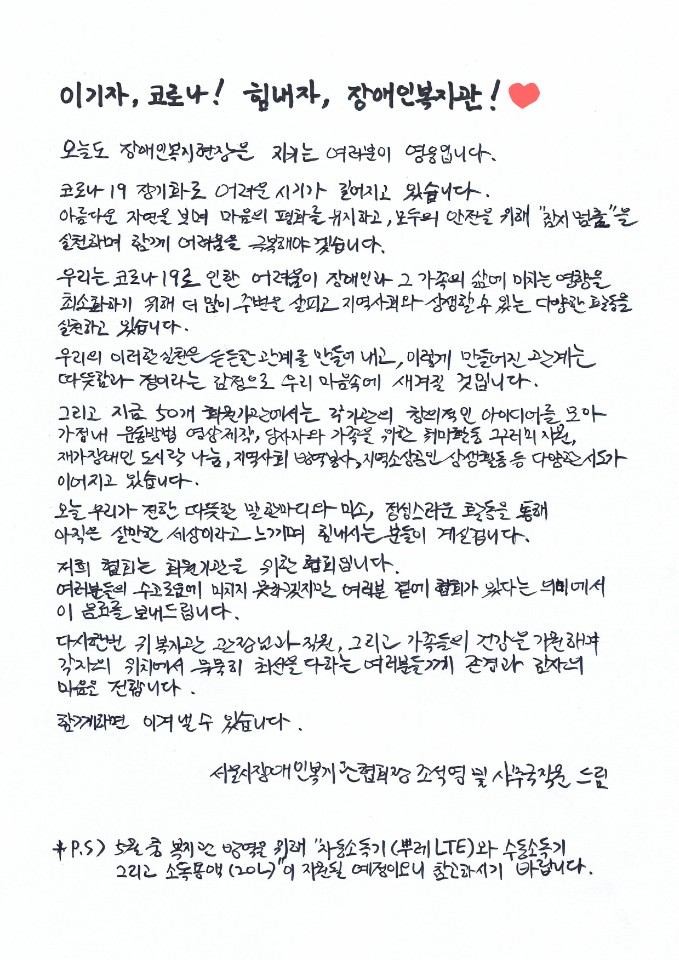 이기자, 코로나! 힘내자, 장애인복지관!
오늘도 장애인복지현장을 지키는 여러분이 영웅입니다.
코로나 19 장기화로 어려운 시기가 길어지고 있습니다.
아름다운 자연을 보며 마음의 평화를 유지하고, 모두의 안전을 위해 "잠시 멈춤"을
실천하며 함께 어려움을 극복해야 겠습니다.
우리는 코로나19로 인한 어려움이 장애인과 그 가족의 삶에 미치는 영향을
최소화하기 위해 더 많이 주변을 살피고 지역사회와 상생할 수 있는 다양한 활동을
실천하고 있습니다.
우리의 이러한 실천은 든든한 관계를 만들어 내고, 이렇게 만들어진 관계는
따뜻함과 정이라는 감정으로 우리 마음속에 새겨질 것입니다.
그리고 지금 50개 회원기관에서는 각 기관의 창의적인 아이디어를 모아
가정내 운동방법 영상제작, 당사자와 가족을 위한 취미활동 꾸러미 지원,
재가장애인 도시락 나눔, 지역사회 방역봉사, 지역소상공인 상생활동 등 다양한 시도가
이어지고 있습니다.
오늘 우리가 전한 따뜻한 말 한마디와 미소, 정성스러운 활동을 통해
아직은 살만한 세상이라고 느끼며 힘내시는 분들이 계실겁니다.
저희 협회는 회원기관을 위한 협회입니다.
여러분들의 수고로움에 미치지 못하겠지만 여러분 곁에 협회가 있다는 의미에서
이 음료를 보내드립니다.
다시한번 귀 복지관 관장님과 직원, 그리고 가족들의 건강을 기원하며
각자의 위치에서 묵묵히 최선을 다하는 여러분들께 존경과 감사의
마음을 전합니다.
함께라면 이겨낼 수 있습니다.
서울시장애인복지관협회장 조석영 및 사무국직원 드림
* P.S) 5월 중 복지관 방역을 위해 "자동소독기(뿌레 LTE)와 수동소독기
그리고 소독용액(20L)"이 지원될 예정이오니 참고하시기 바랍니다.